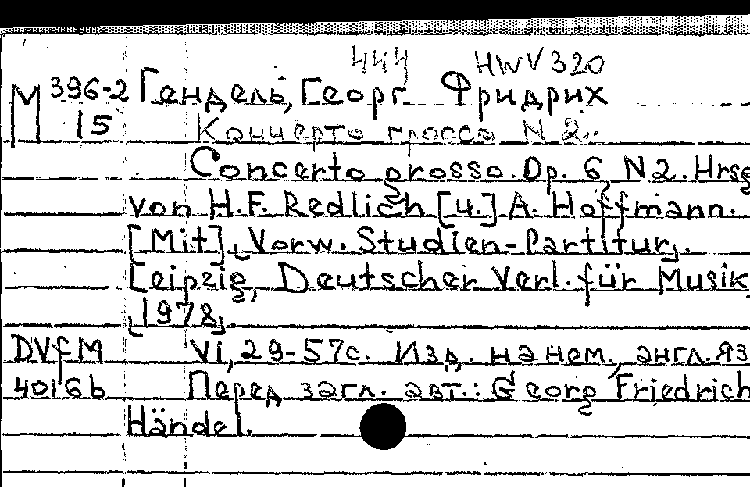 444 HWV 320
M 396-2 Гендель, Георг Фридрих
15 Кончерто гроссо N 2.
Concerto grosso. Op. 6, N2. Hrsg
von H.F. Redlich [u.] A. Hoffmann.
[Mit] Vorw. Studien-Partitur.
Leipzig, Deutscher Verl. für Musik
1978.
DVfM VI, 29-57с. Изд. на нем., англ. яз
4016b Перед загл. авт.: Georg Friedrich
Händel.